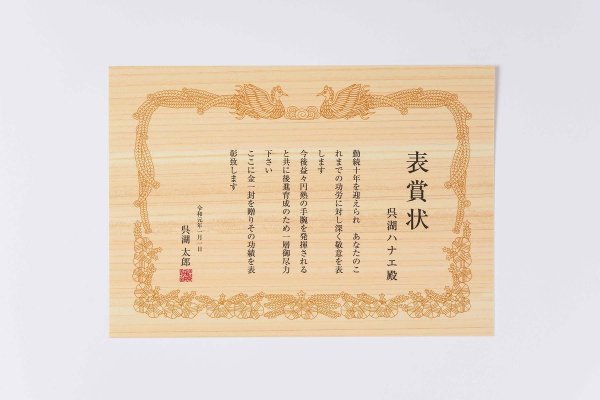 表賞状
呉湖ハナエ殿
勤続十年を迎えられ あなたのこ
れまでの功労に対し深く敬意を表
します
今後益々円熟の手腕を発揮される
と共に後進育成のため一層御尽力
下さい
ここに金一封を贈りその功績を表
彰致します
令和元年一月一日
呉湖 太郎